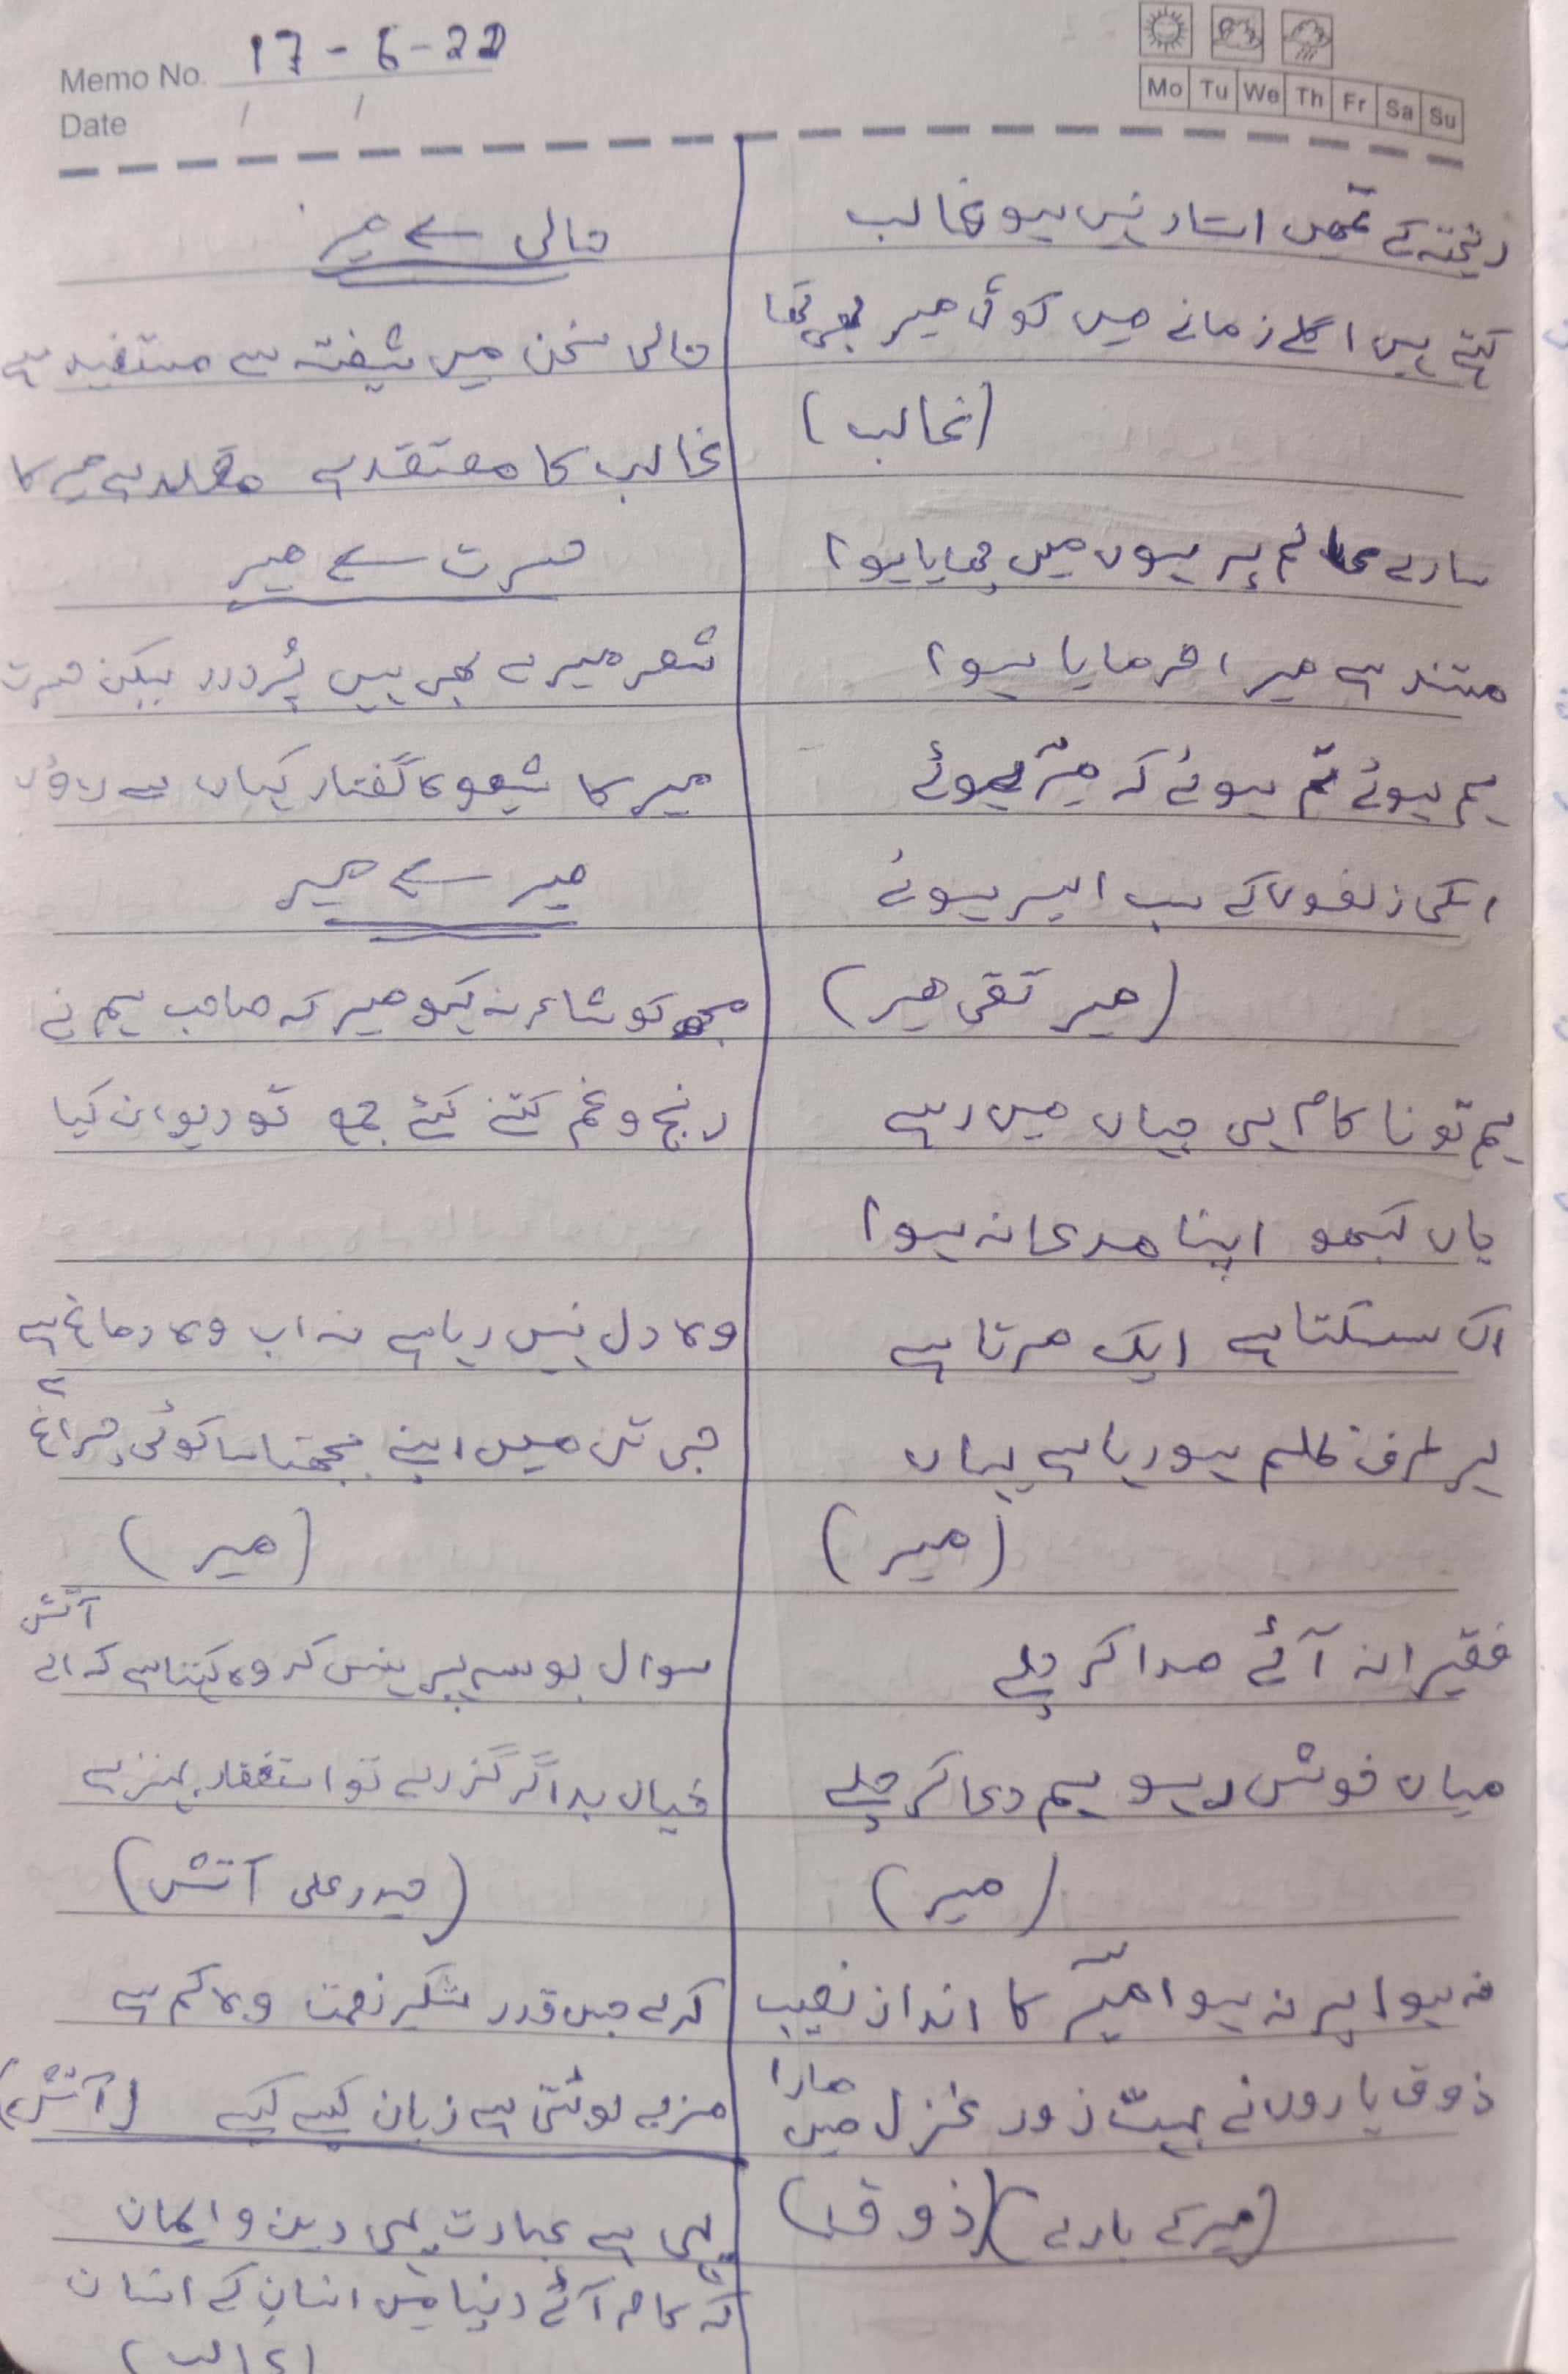 Memo No. 17-6-22
Date / /
Mo Tu We Th Fr Sa Su
ریختہ کے تمھیں استاد نہیں ہو غالب
کہتے ہیں اگلے زمانے میں کوئی میر بھی تھا
(غالب)
سارے عالم پر ہوں میں چھایا ہوا
مستند ہے میرا فرمایا ہوا
ہم ہوئے تم ہوئے کہ میر ہوئے
اسکی زلفوں کے سب اسیر ہوئے
(میر تقی میر)
ہم تو ناکام ہی جہاں میں رہے
یاں کبھو اپنا مدعا نہ ہوا
اک سسکتا ہے ایک مرتا ہے
ہر طرف ظلم ہو رہا ہے یہاں
(میر)
فقیرانہ آئے صدا کر چلے
میاں خوش رہو ہم دعا کر چلے
(میر)
نہ ہوا پر نہ ہوا میر کا انداز نصیب
ذوق یاروں نے بہت زور غزل میں مارا
(میر کے بارے) (ذوق)
حالی سے میر
حالی سخن میں شیفتہ سے مستفید ہے
غالب کا معتقد ہے مقلد ہے میر کا
حسرت سے میر
شعر میرے بھی ہیں پُر درد لیکن حسرت
میر کا شیوہ گفتار کہاں سے لاؤں
میر سے میر
مجھ کو شاعر نہ کہو میر کہ صاحب ہم نے
رنج و غم کتنے کئے جمع تو دیوان کیا
وہ دل نہیں رہا ہے نہ اب وہ دماغ ہے
جی تن میں اپنے بجھتا سا کوئی چراغ ہے
(میر)
سوال بوسے پر ہنس کر وہ کہتا ہے کہ اے آتش
خیال بد اگر گزرے تو استغفار بہتر ہے
(حیدر علی آتش)
کرے جس قدر شکر نعمت وہ کم ہے
مزے لوٹتی ہے زبان کیسے کیسے (آتش)
یہی ہے عبادت یہی دین و ایمان
کہ کام آئے دنیا میں انسان کے انسان